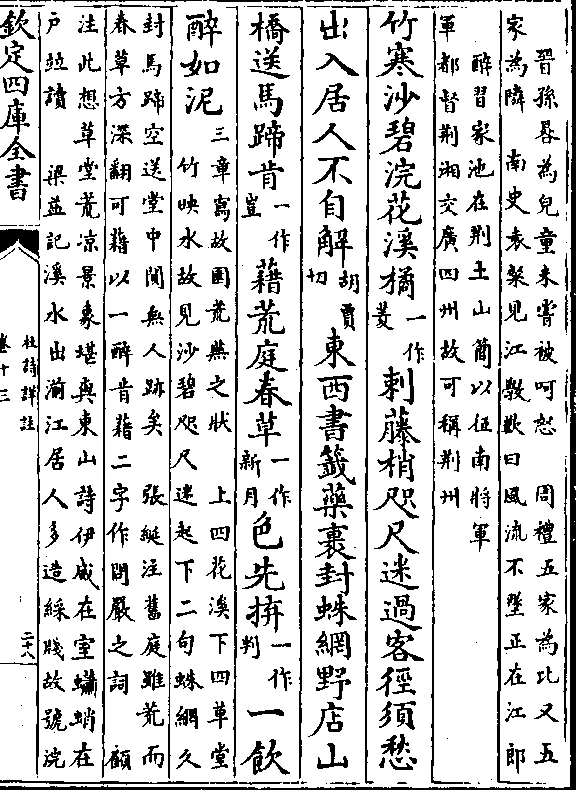 晋孫晷為兒童未嘗被呵怒　周禮五家為比又五
家為隣　南史袁粲見江斆歎曰風流不墜正在江郎
醉習家池在荆土山簡以征南將軍
軍都督荆湘交廣四州故可稱荆州
竹寒沙碧浣花溪橘一作菱刺藤梢咫尺迷過客徑須愁
出入居人不自解胡賈切東西書籤藥裹封蛛網野店山
橋送馬蹄肯一作豈藉荒庭春草一作新月色先拚一作判一飲
醉如泥三章寫故園荒蕪之狀　上四花溪下四草堂
竹映水故見沙碧咫尺迷起下二句蛛網久
封馬蹄空送堂中閴無人跡矣　張綖注舊庭雖荒而
春草方深翻可藉以一醉肯藉二字作問嚴之詞　顧
注此想草堂荒凉景象堪與東山詩伊威在室蠨蛸在
户竝讀　梁益記溪水出湔江居人多造綵牋故號浣
欽定四庫全書
杜詩詳註
卷十三
二十八